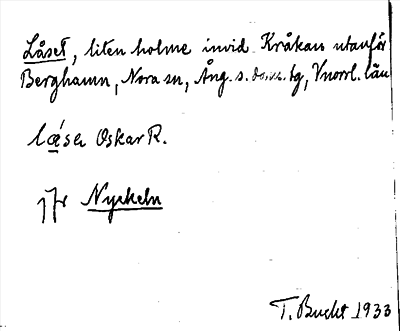 Låset, liten holme invid Kråkan utanför
Berghamn, Nora sn, Ång. s. doms. tg, Vnorrl. län
lǽsa Oskar R.
jfr Nyckeln
T. Bucht 1933